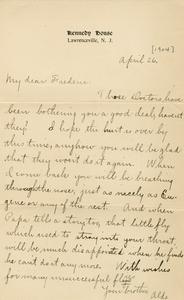 Kennedy House
Lawrenceville, N. J.
[1904]
April 26.
My dear Frederic
Those Doctors have
been bothering you a good deal, haven't
they? I hope the hurt is over by
this time, anyhow you will be glad
that they wont do it again. When
I come back you will be breathing
through the nose, just as nicely as Eu-
gene or any of the rest. And when
Papa tells a story too, that little fly
which used to stray into your throat,
will be much disappointed when he finds
he can't do it any more. With wishes
for many unsuccessful flys
Your brother Aldo